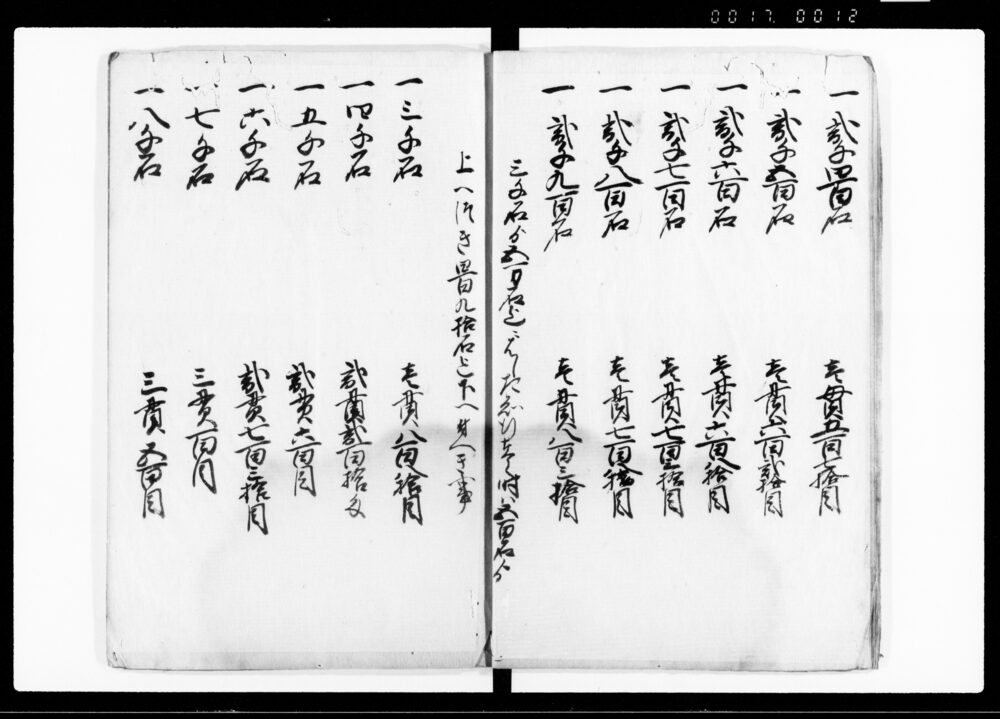 0017 0012
一 弐千四百石 壱貫五百七拾目
一 弐千五百石 壱貫六百弐拾目
一 弐千六百石 壱貫六百八拾目
一 弐千七百石 壱貫七百三拾目
一 弐千八百石 壱貫七百八拾目
一 弐千九百石 壱貫八百三拾目
三千石ゟ五百石迄 時ハ五百石ゟ
上へつき四百九拾石迄下へ付ヘキ事
一 三千石 壱貫八百八拾目
一 四千石 弐貫弐百拾目
一 五千石 弐貫六百目
一 六千石 弐貫七百三拾目
一 七千石 三貫百目
一 八千石 三貫五百目